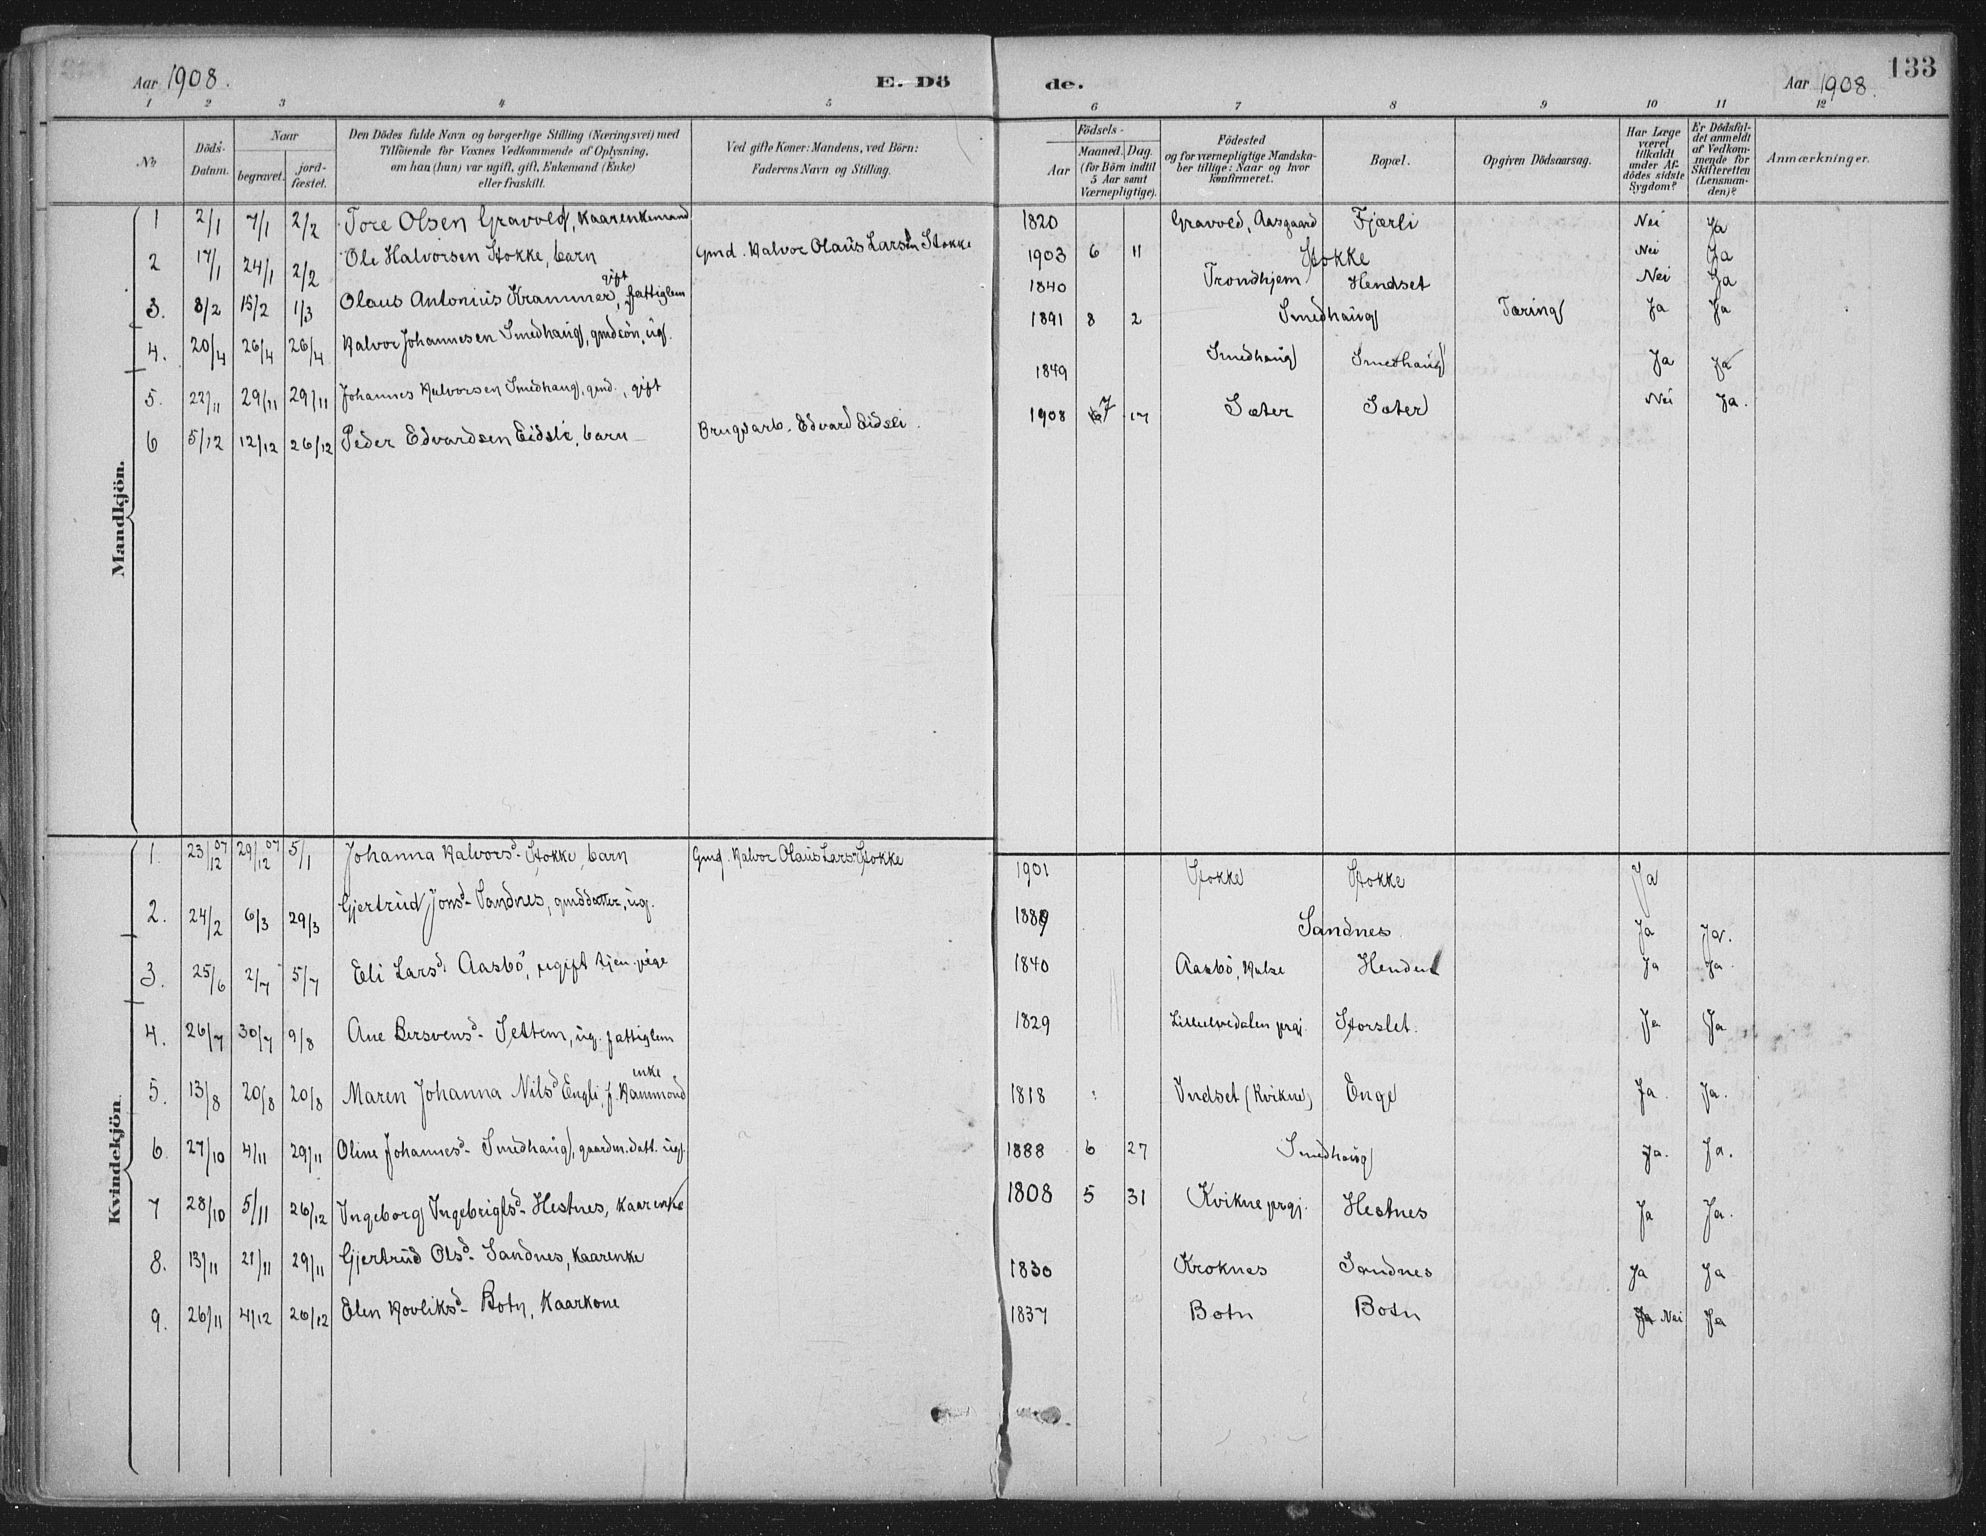 Aar 1908. E. Dö de. Aar 1908. 133
1 2 3 4 5 6 7 8 9 10 11 12
No Döds-Datum. Naar begravet. jord-fæstet. Den Dödes fulde Navn og borgerlige Stilling (Næringsvei) med Tilföiende for Voxnes Vedkommende af Oplysning, om han (hun) var ugift, gift, Enkemand (Enke) eller fraskilt. Ved gifte Koner: Mandens, ved Börn: Faderens Navn og Stilling. Aar Födsels- Maaned. Dag. (for Börn indtil 5 Aar samt Værnepligtige). Födested og for værnepligtige Mandska-ber tillige: Naar og hvor konfirmeret. Bopæl. Opgiven Dödsaarsag. Har Læge været tilkaldt under Af-dödes sidste Sygdom? Er Dödsfal-det anmeldt af Vedkom-mende for Skifteretten (Lensman-den)? Anmærkninger.
Mandkjön.
1 2/1 7/1 2/2 Tore Olsen Gravold, Kaarenkemand 1820 Gravold, Aasgaard Fjærli Nei Ja
2 17/1 24/1 2/2 Ole Halvorsen Stokke, barn Gmd. Halvor Olaus Larsen Stokke 1903 6 11 Stokke Nei Ja
3. 8/2 15/2 1/3 Olaus Antonius Krammer, gift, fattiglem 1840 Trondhjem Hendset Nei Ja
4. 20/4 26/4 26/4 Halvor Johannesen Smedhaug, gmdsön, ug. 1891 8 2 Smedhaug Tæring Ja Ja
5. 22/11 29/11 29/11 Johannes Halvorsen Smedhaug, gmd., gift 1849 Smedhaug Smedhaug Ja Ja
6 5/12 12/12 26/12 Peder Edvardsen Eidsli, barn Brugsarb. Edvard Eidsli. 1908 7 17 Sæter Sæter Nei Ja.
Kvindekjön.
1. 23/12 07 29/12 07 5/1 Johanna Halvorsd. Stokke, barn Gmd. Halvor Olaus Lars. Stokke 1901 Stokke Stokke Ja
2. 24/2 6/3 29/3 Gjertrud Jonsd. Sandnes, gmddatter, ug. 1889 Sandnes Ja Ja.
3. 25/6 2/7 5/7 Eli Larsd. Aasbö, ugift tjen. pige 1840 Aasbö, Halse Ja Ja.
4. 26/7 30/7 9/8 Ane Bersvensd. Settem, ug. fattiglem 1829 Lilleelvedalen prgj. Storslet. Ja Ja
5. 13/8 20/8 20/8 Maren Johanna Nilsd. Engli, f. Hammond enke 1818 Indset (Kvikne) Enge Ja. Ja.
6. 27/10 4/11 29/11 Oline Johannesd. Smedhaug, gaardm.datt. ug. 1888 6 27 Smedhaug Ja. Ja.
7 28/10 5/11 26/12 Ingeborg Ingebrigtsd. Hestnes, Kaarenke 1808 5 31 Kvikne prgj. Hestnes Ja Ja.
8. 13/11 21/11 29/11 Gjertrud Olsd. Sandnes, Kaarenke 1830 Kroknes Sandnes Ja Ja
9. 26/11 4/12 26/12 Elen Hovliksd. Botn, Kaarkone 1837 Botn Botn Ja Nei Ja